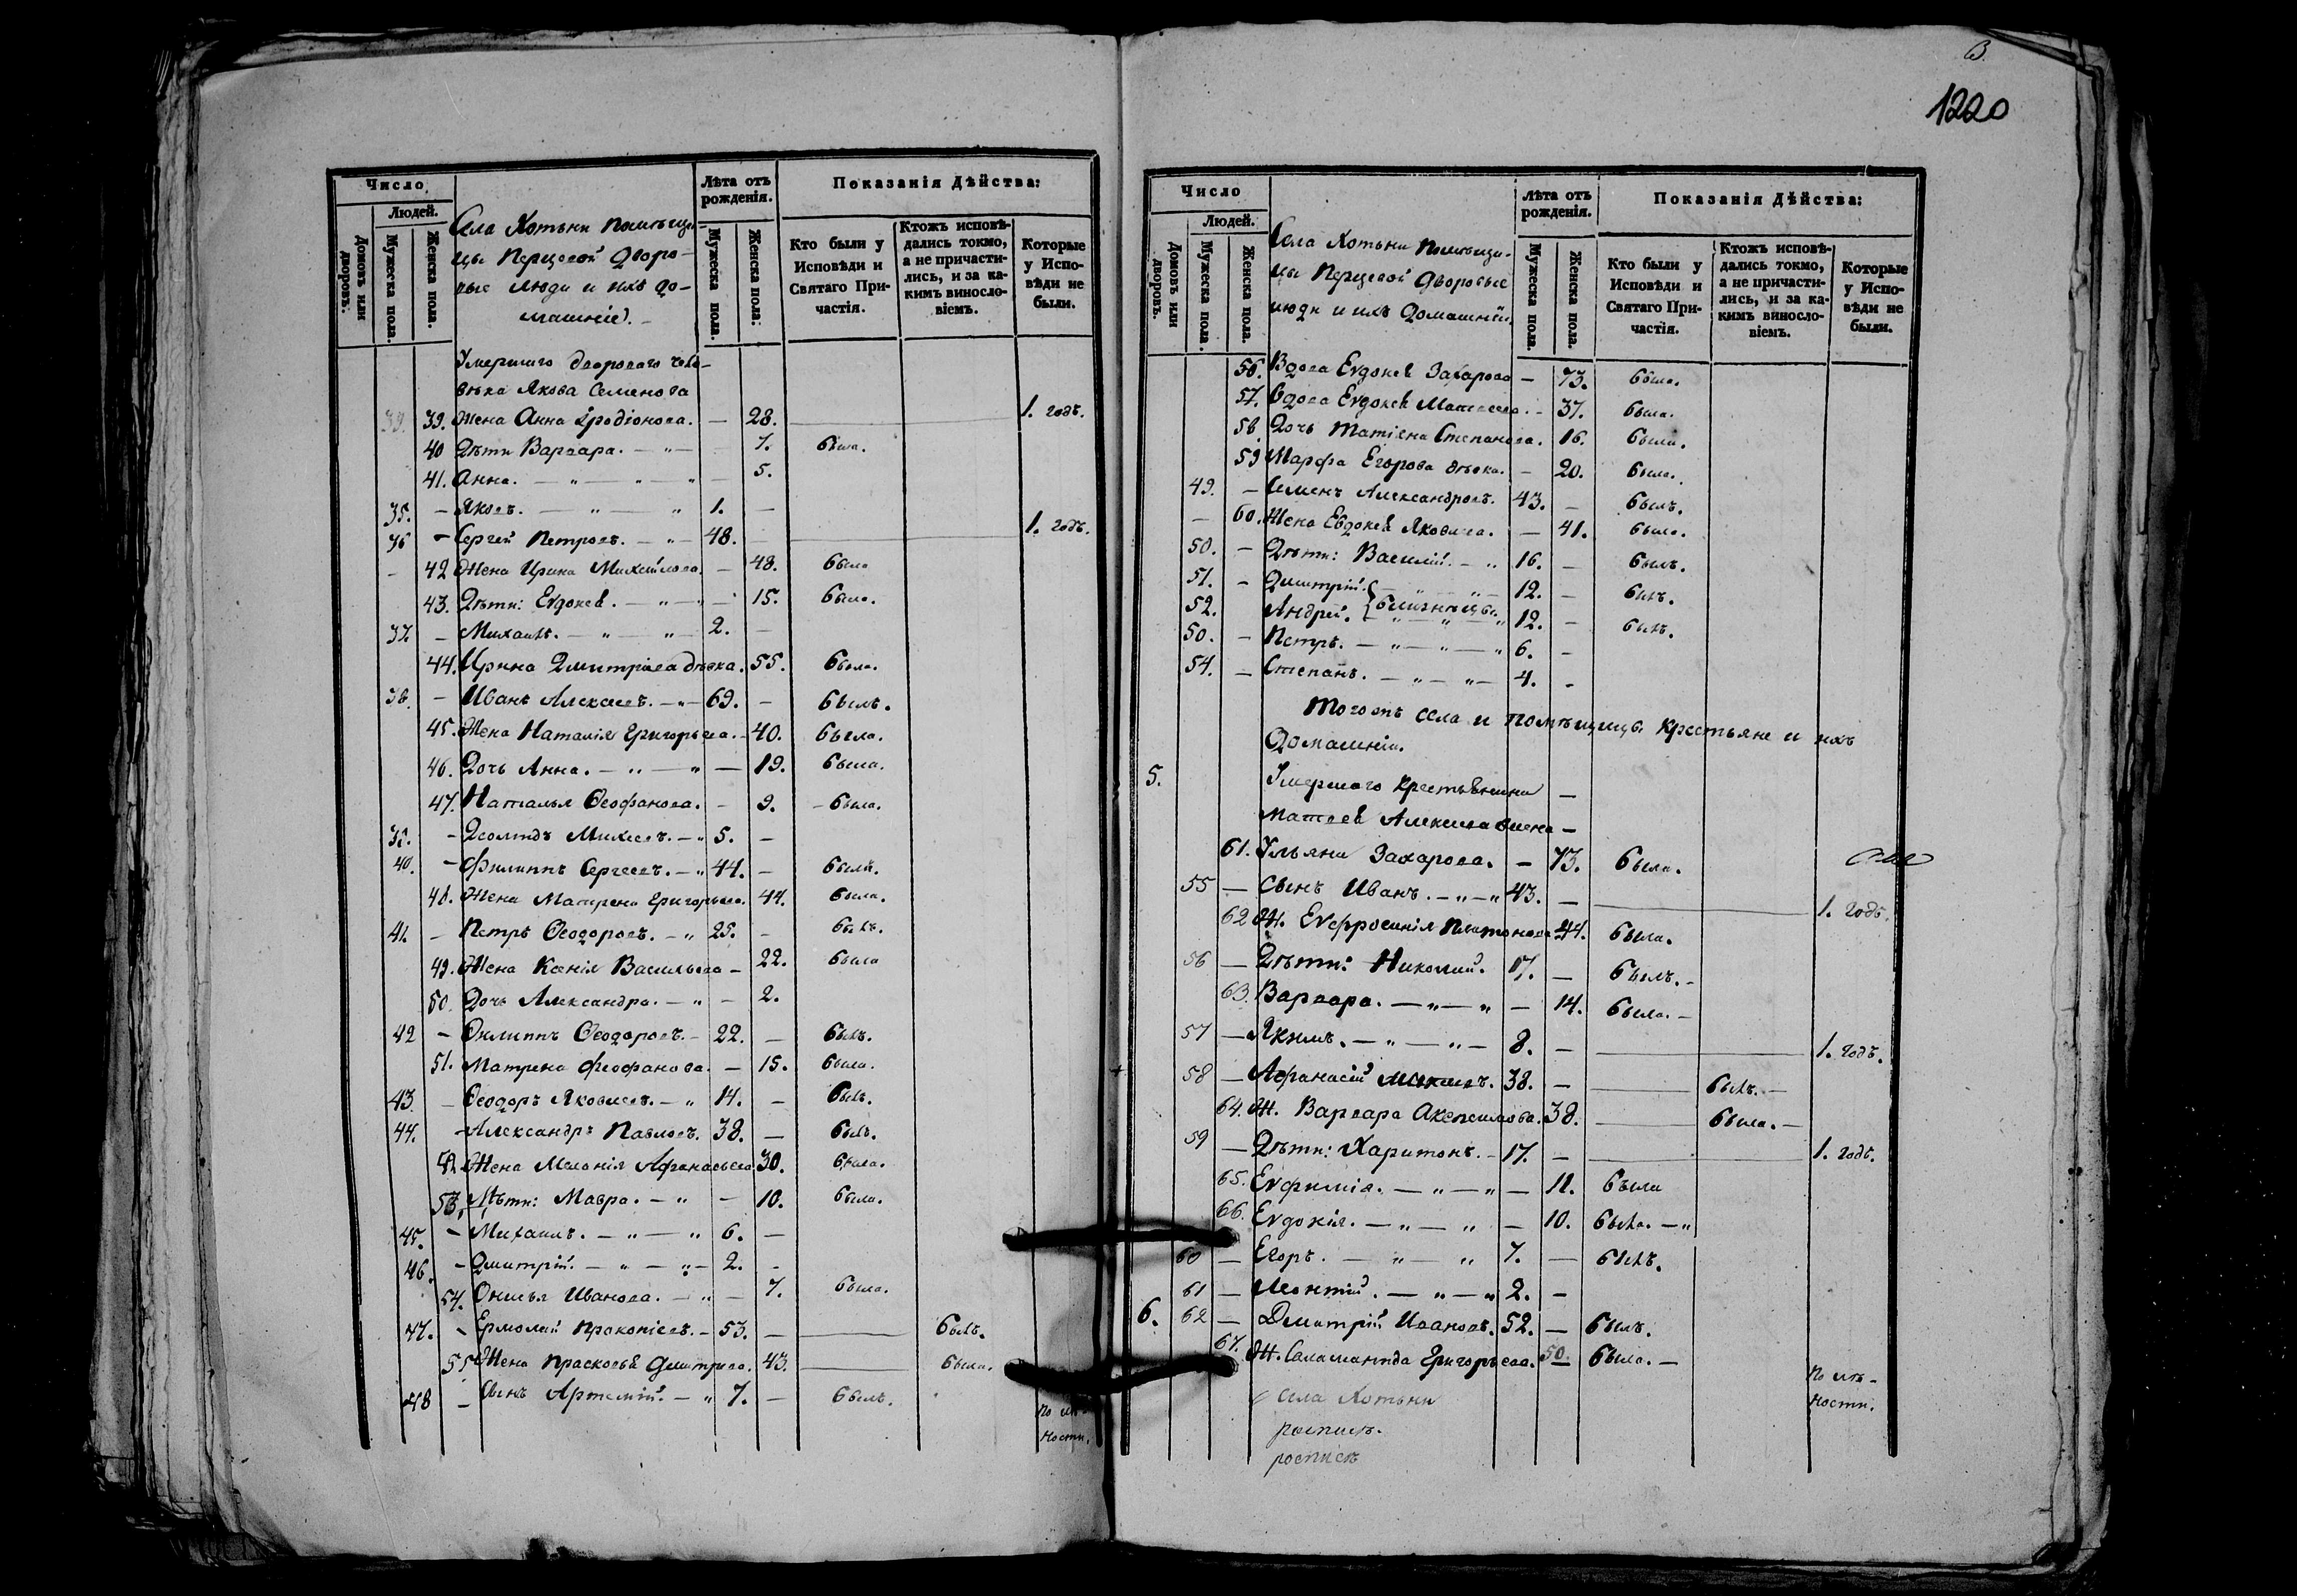 Число
Людей.
Домовъ или дворовъ.
Мужеска пола.
Женска пола.
Села Хотьни помѣщи-
цы Перцевой дворо-
вые люди и ихъ до-
машніе.
Лѣта отъ рожденія.
Мужеска пола.
Женска пола.
Показанія Дѣйства:
Кто были у Исповѣди и Святаго При-частія.
Ктожъ исповѣ-дались токмо, а не причасти-лись, и за ка-кимъ винословіемъ.
Которые у Испо-вѣди не были.
Умершаго двороваго чело-
вѣка Якова Семенова
39. 39. Жена Анна Иродіонова. — 28. 1. годъ.
40 Дѣти Варвара. — " — 7. была.
41. Анна. — " — " — " — 5.
35. — Яковъ. — " — " 1. —
36 — Сергей Петровъ. — " — 48. — 1. годъ.
— 42 Жена Ирина Михайлова. — 48. была
43. Дѣти: Евдокея. — " — " — 15. была.
37. — Михаилъ. — " — " — 2. —
44. Ирина Дмитріева дѣвка. 55. была.
38. — Иванъ Алексеевъ. — " — 69. — былъ.
45. Жена Наталія Григорьева. — 40. была.
46. Дочь Анна. — " — " — 19. была.
47. Наталья Ѳеофанова. — 9. — была.
39. — Михеевъ. — " 5. —
40. — Филиппъ Сергеевъ. — " 44. — былъ.
48. Жена Матрена Григорьева. 44. была.
41. — Петръ Ѳеодоровъ. — " 25. — былъ.
49. Жена Ксенія Васильева — 22. была
50. Дочь Александра. — " — 2.
42 — Филиппъ Ѳеодоровъ. — 22. — былъ.
51. Матрена Феофанова. — 15. была.
43. — Ѳеодоръ Яковлевъ. — " 14. — былъ.
44. — Александръ Павловъ. 38. — былъ.
52. Жена Меланія Афанасьева 30. была.
53. Дѣти: Мавра. — " — 10. была.
45. — Михаилъ. — " — " 6. —
46. — Дмитрій. — " — " — 2. —
54. Онисья Иванова. — " — 7. была.
47. — Ермолай Прокопіевъ. — 53. — былъ.
55 Жена Прасковья Дмитрева. 43. была.
48 — Сынъ Артемій. — " 7. — былъ.
1220
Число
Людей.
Домовъ или дворовъ.
Мужеска пола.
Женска пола.
Села Хотьни Помѣщи-
цы Перцевой дворовые
люди и ихъ домашніи.
Лѣта отъ рожденія.
Мужеска пола.
Женска пола.
Показанія Дѣйства:
Кто были у Исповѣди и Святаго При-частія.
Ктожъ исповѣ-дались токмо, а не причасти-лись, и за ка-кимъ винословіемъ.
Которые у Испо-вѣди не были.
56. Вдова Евдокея Захарова — 73. была.
57. Вдова Евдокея Матвеева. — 37. была.
58. Дочь Татіяна Степанова. 16. была.
59 Марфа Егорова дѣвка. — 20. была.
49. — Семенъ Александровъ. 43. — былъ.
— 60. Жена Евдокея Яковлева. — 41. была.
50. — Дѣти: Василій. — " 16. — былъ.
51. — Дмитрій. близнецы. 12. — былъ.
52. Андрей. 12. — былъ.
50. — Петръ. — " — " — " 6. —
54. — Степанъ. — " — " — 4. —
Тогожъ села и помѣщицы крестьяне и ихъ
домашніи.
5. Умершаго крестьянина —
Матвея Алексеева жена —
61. Ульяна Захарова. — 73. была.
55 — Сынъ Иванъ. — " — " 43. — 1. годъ.
62 Ж. Евфросинія Платонова 44. была.
56 — Дѣти: Николай. 17. — былъ. —
63. Варвара. — " — " — 14. была. —
57 — Якимъ. — " — " — 8. — 1. годъ.
58 — Афанасій 38. — былъ. —
64. Ж. Варвара 38. была. —
59 — Дѣти: Харитонъ. — 17. — 1. годъ.
65. Евфимія. — " — " — 11. была
66. Евдокія. — " — " — 10. была. — "
60 — Егоръ. — " — " 7. — былъ.
61 — Леонтій. — " — " 2. —
6. 62 — Дмитрій Ивановъ. 52. — былъ.
67. Ж. Саламанида Григорьева. 50. была. —
села Хотьни
роспись.
роспись